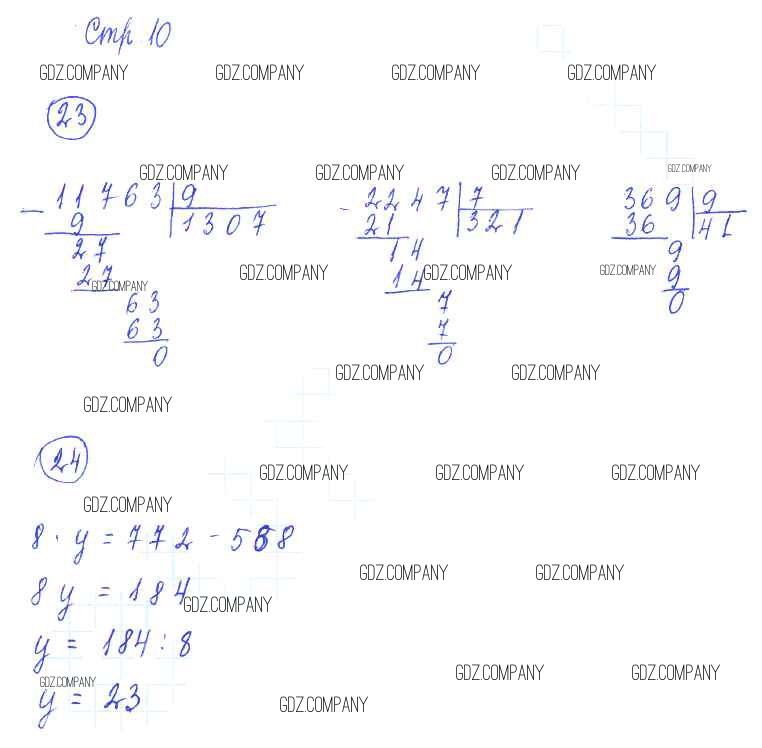 Стр 10
GDZ.COMPANY GDZ.COMPANY GDZ.COMPANY GDZ.COMPANY
23
GDZ.COMPANY GDZ.COMPANY GDZ.COMPANY GDZ.COMPANY
- 11763 | 9 - 2247 | 7 369 | 9
9 1307 21 321 36 41
27 14 9
GDZ.COMPANY GDZ.COMPANY GDZ.COMPANY
27 14 9
GDZ.COMPANY
63 7 0
63 7
0 0
GDZ.COMPANY GDZ.COMPANY
GDZ.COMPANY
24
GDZ.COMPANY GDZ.COMPANY GDZ.COMPANY
GDZ.COMPANY
8 · y = 772 - 588
GDZ.COMPANY GDZ.COMPANY
8y = 184
GDZ.COMPANY
y = 184 : 8
GDZ.COMPANY GDZ.COMPANY
GDZ.COMPANY
y = 23
GDZ.COMPANY